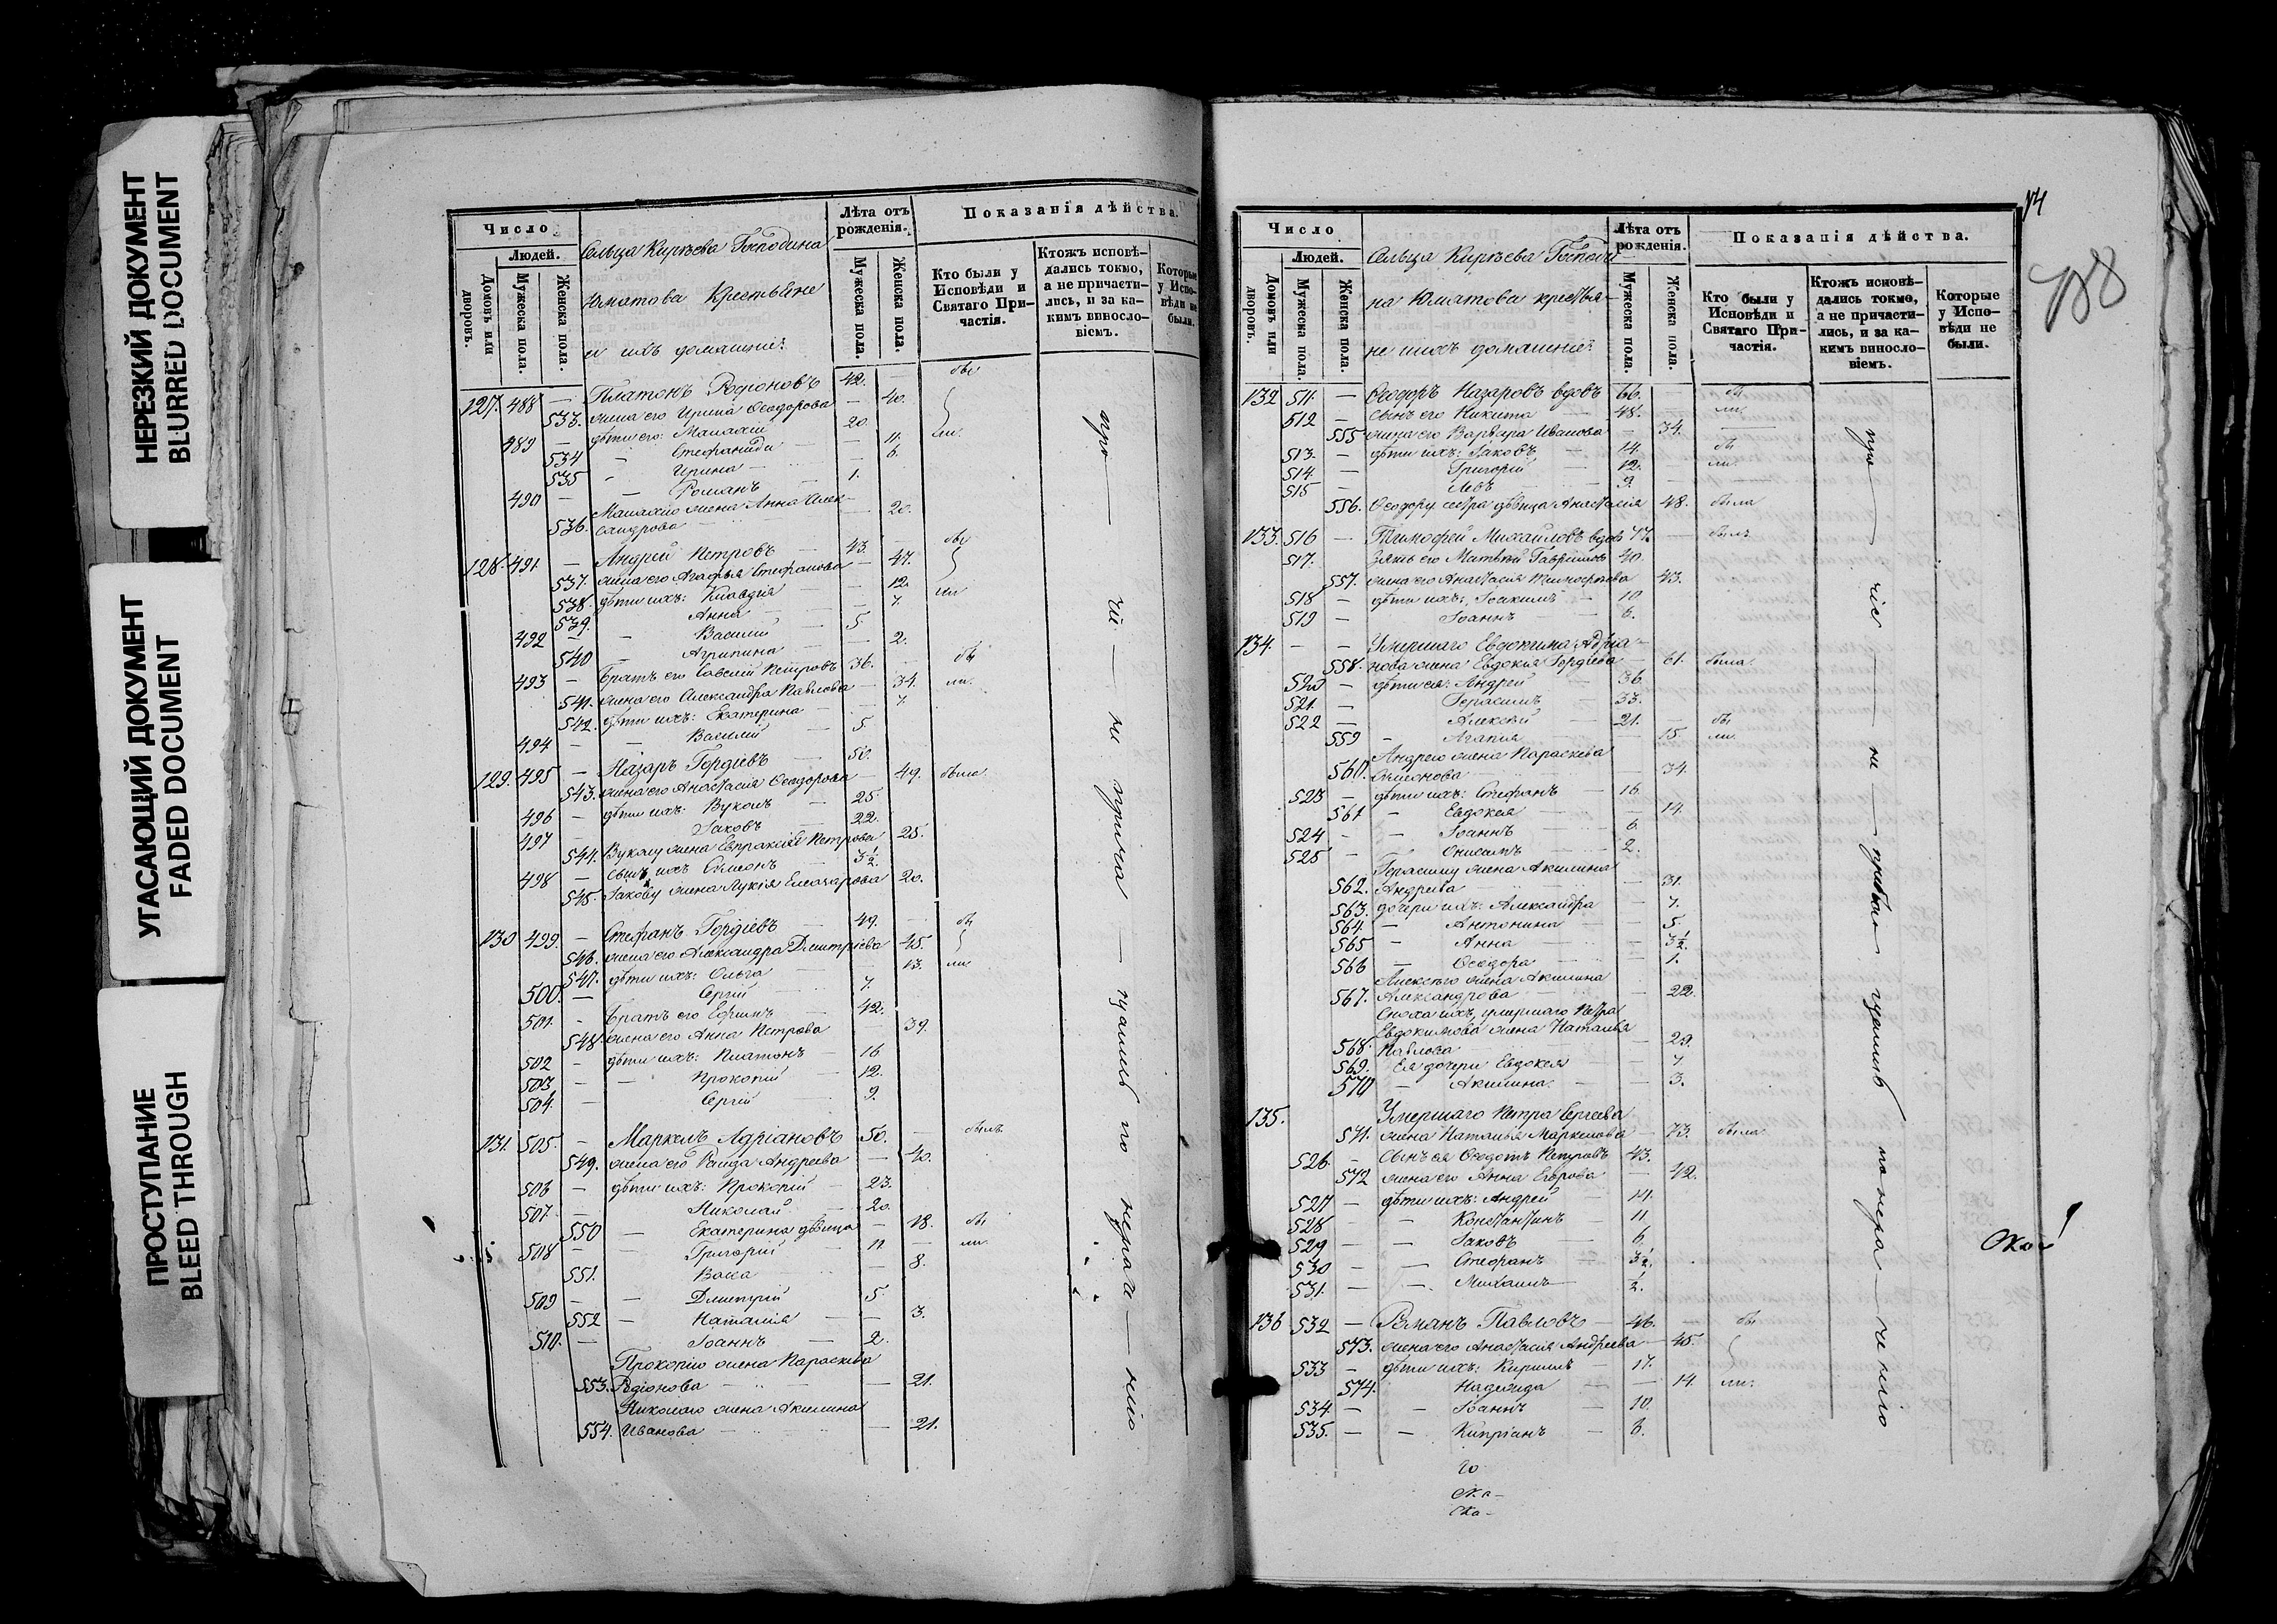 НЕРЕЗКИЙ ДОКУМЕНТ
BLURRED DOCUMENT
УГАСАЮЩИЙ ДОКУМЕНТ
FADED DOCUMENT
ПРОСТУПАНИЕ
BLEED THROUGH
Число
Людей.
Домовъ или дворовъ.
Мужеска пола.
Женска пола.
Сельца Кирѣева Господина
Юматова Крестьяне
и ихъ домашніе:
Лѣта отъ рожденія.
Мужеска пола.
Женска пола.
Показанія дѣйства.
Кто были у Исповѣди и Святаго Причастія.
Ктожъ исповѣдались токмо, а не причастились, и за какимъ винословіемъ.
Которые у Исповѣди не были.
127. 488 — Платонъ Родіоновъ 42. — бы
533. жена его Ирина Ѳеодорова — 40.
489 — дѣти его: Малахій 20. ли.
534 — Стефанида — 11.
535 — Ирина — 6.
490 — — Романъ 1.
Малахію жена Анна Алек-
536. сандрова — 20.
128. 491 — Андрей Петровъ 43. — бы
537. жена его Агафья Стефанова — 47.
538. дѣти ихъ: Клавдія — 12. ли
539. Анна — 7.
492 — — Василій 5
540 — Агрипина — 2.
493 — Братъ его Савелій Петровъ 36. — бы
541. жена его Александра Павлова — 34. ли.
542. дѣти ихъ: Екатерина — 7.
494 — — Василій 5.
129. 495 — Назаръ Гордіевъ 50.
543. жена его Анастасія Ѳеодорова — 49. была.
496 — дѣти ихъ: Вуколъ 25.
497 — Іаковъ 22.
544. Вуколу жена Евпраксія Петрова 25.
498 — сынъ ихъ Симеонъ 3½.
545. Іакову жена Лукія Елеазарова 20.
130 499. — Стефанъ Гордіевъ 49. — бы
546. жена его Александра Дмитріева 45.
547. дѣти ихъ: Ольга — 13. ли.
500. — Сергій 7.
501. — Братъ его Ефимъ 42.
548. жена его Анна Петрова — 39.
502 — дѣти ихъ: Платонъ 16
503 — — Прокопій 12.
504. — Сергій 9.
131. 505. — Маркелъ Адріановъ 50. — былъ.
549. жена его Раида Андреева — 40.
506 — дѣти ихъ: Прокопій 23.
507. — Николай 20.
550 — Екатерина дѣвица — 18. бы
508 — — Григорій 11 — ли.
551. Васса — 8.
509 — — Дмитрій 5
552 — Наталія — 3.
510. — Іоаннъ 2.
Прокопію жена Параскева
553. Родіонова — 21.
Николаю жена Акилина
554. Иванова — 21.
74
Число
Людей.
Домовъ или дворовъ.
Мужеска пола.
Женска пола.
Сельца Кирѣева Господи-
на Юматова крестья-
не и ихъ домашніе:
Лѣта отъ рожденія.
Мужеска пола.
Женска пола.
Показанія дѣйства.
Кто были у Исповѣди и Святаго Причастія.
Ктожъ исповѣдались токмо, а не причастились, и за какимъ винословіемъ.
Которые у Исповѣди не были.
132 511. — Ѳеодоръ Назаровъ вдовъ 66. — бы
512 — сынъ его Никита 48. — ли.
555 жена его Варвара Иванова — 34.
513. — дѣти ихъ: Іаковъ 14. бы
514 — Григорій 12. ли.
515 — Левъ 9.
556. Ѳеодору сестра дѣвица Анастасія 48. была
133. 516 — Тимофей Михайловъ вдовъ 77. — былъ
517. Зять его Матвѣй Гавриловъ 40.
557. жена его Анастасія Тимофеева 43.
518 — дѣти ихъ: Іоакимъ 10
519 — Іоаннъ 6.
134. — — Умершаго Евдокима Адріа-
558. нова жена Евдокія Гордіева — 61. была.
520 — дѣти ея: Андрей 36.
521. — Герасимъ 33.
522 — Алексѣй 21. — бы
559 — Агапія — 15. ли.
Андрею жена Параскева
560. Симонова — 34.
523 — дѣти ихъ: Стефанъ 16.
561 — Евдокія — 14.
524 — — Іоаннъ 6.
525 — Онисимъ 2.
Герасиму жена Акилина
562. Андреева — 31.
563. дочери ихъ: Александра — 7.
564. — Антонина — 5.
565 — Анна — 3½.
566 — Ѳеодора — 1.
Алексѣю жена Акилина
567. Александрова — 22.
Сноха ихъ, умершаго Петра
Евдокимова жена Наталія
568. Павлова — 29.
569. Ея дочери Евдокія — 7
570 — Акилина — 3.
135. Умершаго Петра Сергеева
571. жена Наталья Маркелова — 73. была
526. — Сынъ ея Ѳеодотъ Петровъ 43.
572 жена его Анна Егорова — 42.
527 — дѣти ихъ: Андрей 14.
528 — — Константинъ 11
529 — — Іаковъ 6
530 — — Стефанъ 3½.
531. — — Михаилъ ½.
136 532 — Романъ Павловъ 46. — бы
573. жена его Анастасія Андреева 45.
533 — дѣти ихъ: Кириллъ 17.
574. Надежда — 14. ли.
534. — — Іоаннъ 10.
535. — — Кипріанъ 8.